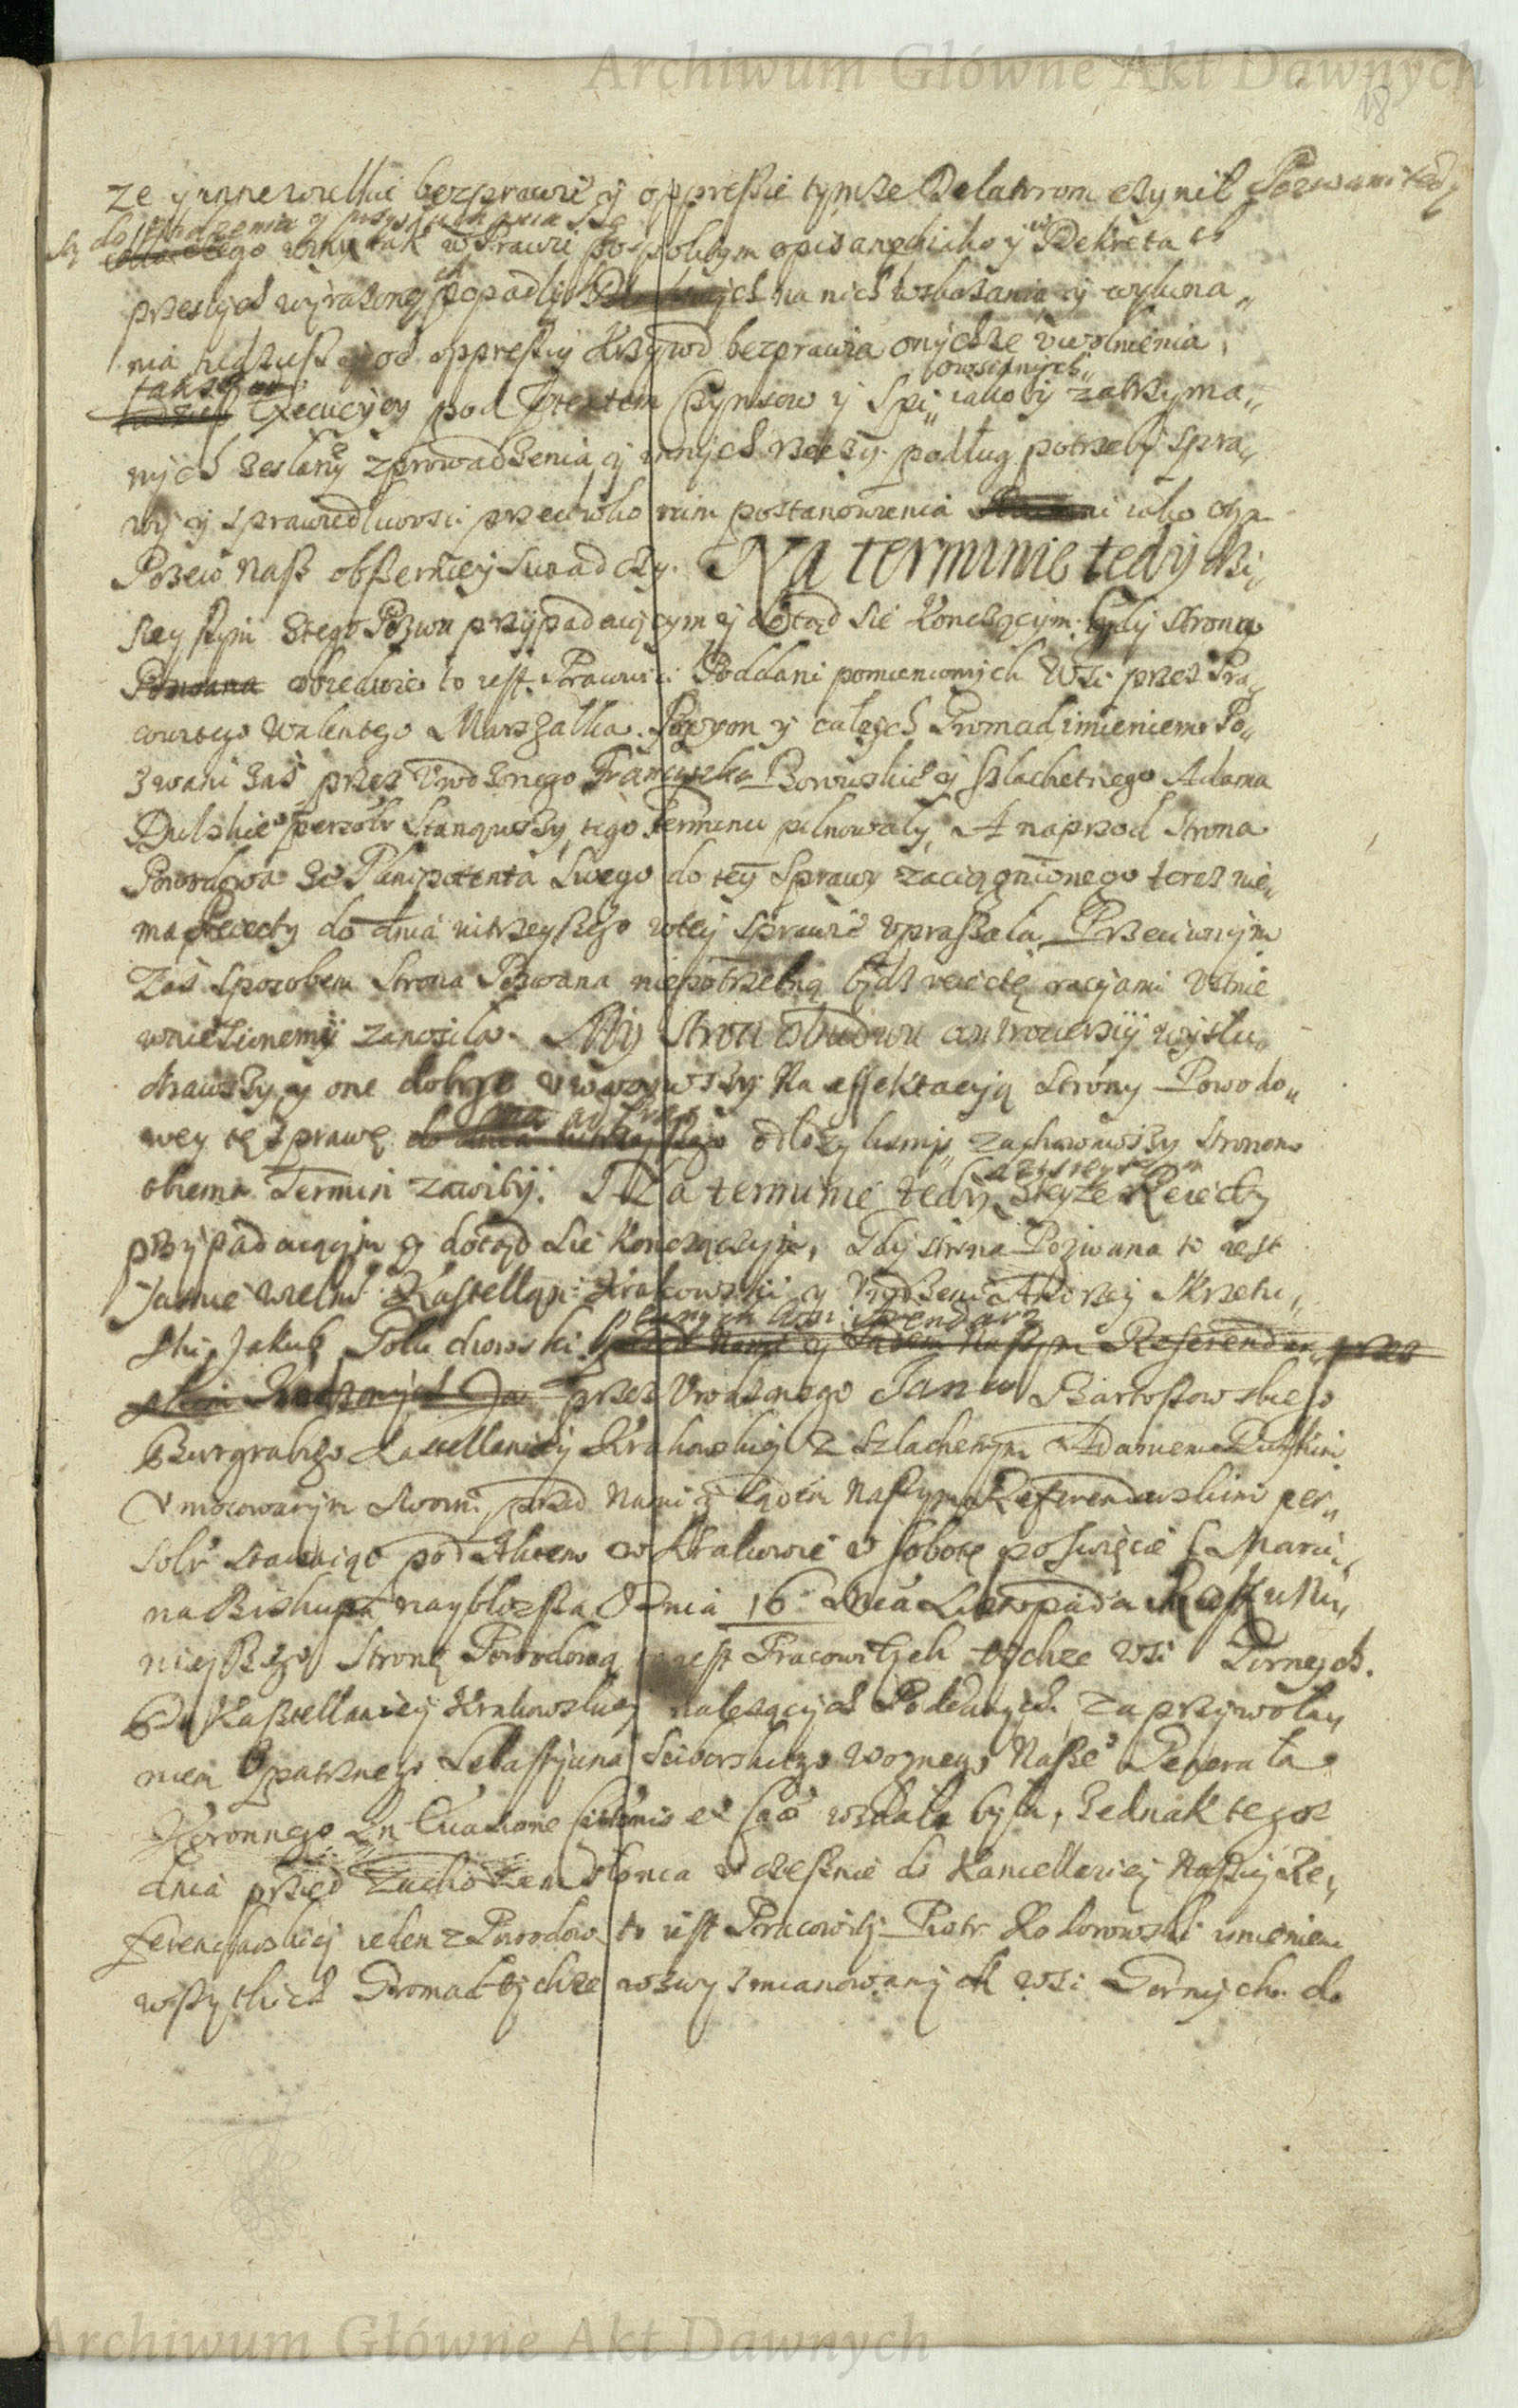 Archiwum Główne Akt Dawnych
18
ze y inne wielkie bezprawie y oppressie tymże Delatorom czynił Pozwani tedy
są do widzenia y przysłuchania się
tego winy tak w Prawie pospolitym opisane iako y w Dekreta ch
przeszłych wyrażone popadłych na nich wskazania y wykona„
nia y od oppressiy Krzywd bezprawia onychże uwolnienia,
także Execucyey pod Praetextem Czynszow y Spi„ owsianych„ iakoby zatrzyma„
nych zesłaney zprowadzenia y innych rzeczy podług potrzeby spra„
wy y sprawiedliwosci przeciwko nim postanowienia iako o tym
Pozew nasz obszerniey swiadczy. Na terminie tedy dzi„
sieyszym z tego Pozwu przypadaiącym y dotąd sie konczącym. Gdy strony
Pozwana obiedwie to iest Pracowici Poddani pomienionych Wsi przez Pra„
cowitego Walentego Marszałka. swym y całych Gromad imieniem Po„
zwani zaś przez Urodzonego Franciszka Borowskie° y szlachetnego Adama
Dulskie° personr Stanąwszy, tego terminu pilnowały, A naprzod Strona
Powodowa że Plenipotenta swego do tey Sprawy zaciągnionego teraz nie„
ma Reiecty do dnia iutrzeyszego w tey sprawie upraszała. Przeciwnym
zaś sposobem Strona Pozwana niepotrzebną bydz reiectę racyami ustnie
wniesionemi zanosiła. My Stron obudwu controwersyi wysłu„
chawszy y one dobrze uważywszy Na affektacyą strony Powodo„
wey tę sprawę do dnia iutrzeyszego odłożylismy„ zachowawszy stronom
obiema Termin zawity. Na terminie tedy dzisieyszym z teyże Reiecty
przypadaiącym y dotąd sie konczącym, Gdy strona Pozwana to iest
Jasnie Wielm Kasztellan Krakowski y Urodzeni Andrzey Skrzetu„
ski, Jakub Poluchowski przed Nami y Sądem Naszym Referendar„ przez
przez Urodzonego Jana Bartoszowskiego
Burgrabiego Kasztellaniey Krakowskiey z Szlachetnym Adamem Dulskim
Umocowanym Swoim, przed Nami y Sądem Naszym Referendarskim per„
solr stawaiąc pod Aktem w Krakowie w Sobotę po Święcie S Marci„
na Biskupa naybliższą Dnia 16 Mca Listopada Roku Ni„
nieyszego Stronę Powodową to iest Pracowitych tychze Wsi Gornych.
Do Kasztellaniey Krakowskiey nalezących Poddanych, za przywołan„
niem Opatrznego Sebastyana Sciborskiego woznego Nasze° Generała
Koronnego In Euasione Citationis et Caae wzdała była, Jednak tegoz
dnia przed Zachodem słonca wcześnie do Kancellariey Naszey Re„
ferendarskiey ieden z Powodow to iest Pracowity Piotr Kodorowski imieniem
wszytkich Gromad tychze wzwyż mianowanych wsi Gornych. do
Archiwum Główne Akt Dawnych